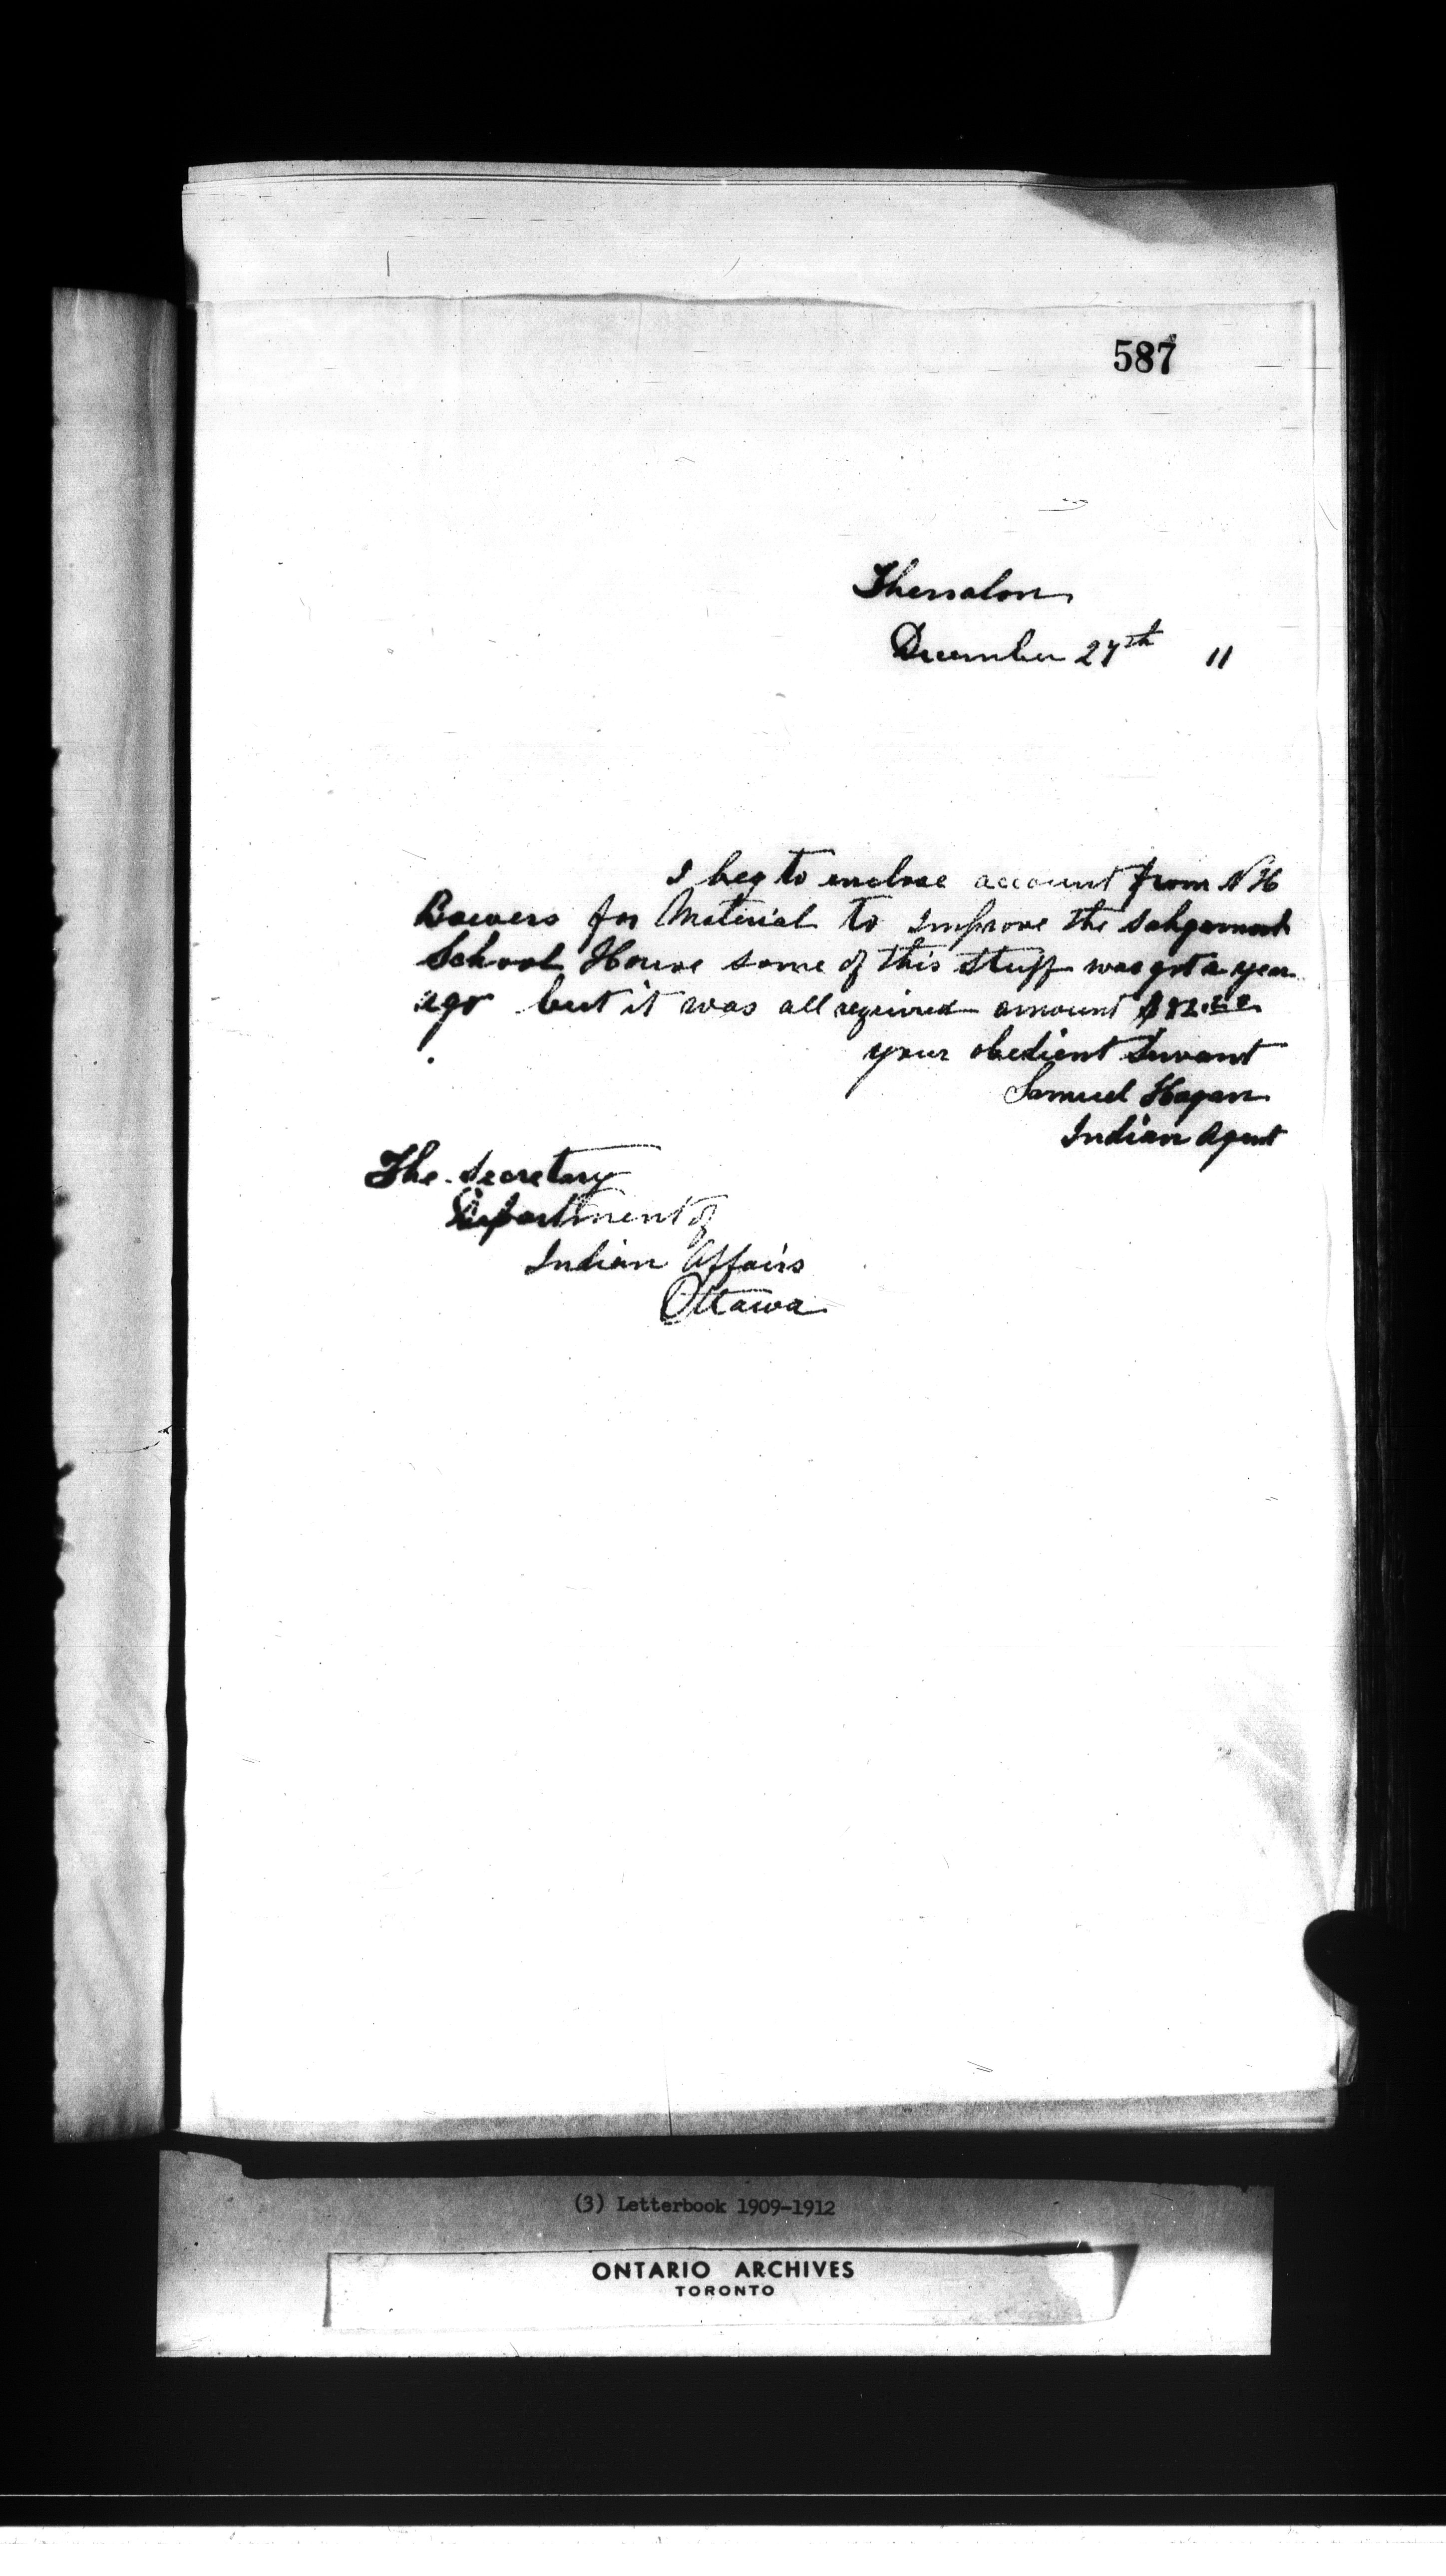 587
Thessalon
December 27th 11
I beg to enclose account from N H
Bowers for Material to improve the
School House some of this stuff was got a year
ago but it was all required amount
your obedient Servant
Samuel Hagan
Indian Agent
The Secretary
Department of
Indian Affairs
Ottawa
(3) Letterbook 1909-1912
ONTARIO ARCHIVES
TORONTO